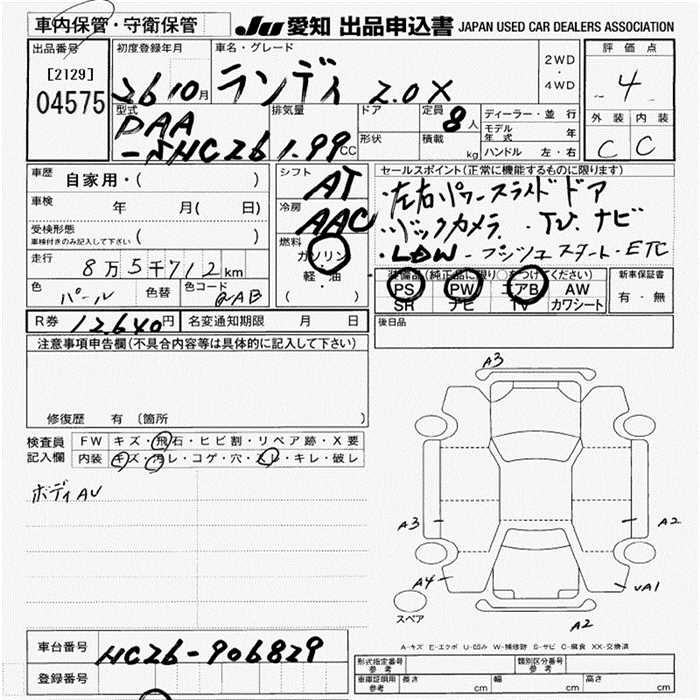 車内保管・守衛保管
JU 愛知 出品申込書 JAPAN USED CAR DEALERS ASSOCIATION
出品番号
[2129]
04575
初度登録年月
26 10月
車名・グレード
ランディ 2.0X
2WD
・
4WD
評価点
4
外装 内装
C C
型式
DAA
HC26
排気量
1.99CC
ドア
形状
定員
8人
積載
kg
ディーラー・並行
モデル年式 年
ハンドル 左・右
車歴
自家用・( )
車検
年 月( 日)
受検形態
車検付きのみ記入して下さい ( )
走行
8万5千712km
色
パール
色替
色コード
QAB
シフト
AT
冷房
AAC
燃料
ガソリン
軽・油
( )
セールスポイント(正常に機能するものに限ります)
・左右パワースライドドア
・バックカメラ. ・TV. ナビ
・LDW ・プッシュスタート・ETC
装備品(純正品に限り○をつけてください)
PS PW エアB AW
SR ナビ TV カワシート
新車保証書
有・無
R券 12,640円
名変通知期限 月 日
後日品
注意事項申告欄(不具合内容等は具体的に記入して下さい)
修復歴 有〔箇所 〕
検査員
記入欄
FW キズ・飛石・ヒビ割・リペア跡・X要
内装 キズ・汚レ・コゲ・穴・スレ・キレ・破レ
ボディAU
A3
A3
A2
A4
UA1
スペア
A2
A-キズ E-エクボ U-凹み W-補修跡 S-サビ C-腐食 XX-交換済
車台番号
HC26-906829
登録番号
形式指定番号
参考
類別区分番号
参考
車庫証明用
参考
長さ cm
幅 cm
高さ cm